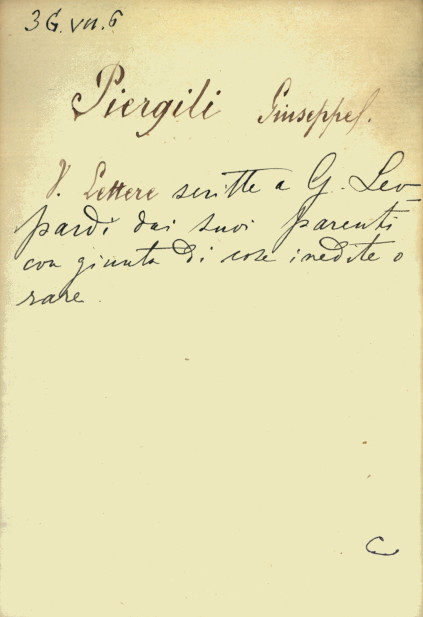 3 G. VII. 6
Piergili Giuseppe.
V. Lettere scritte a G. Leo-
pardi dai suoi parenti
con giunta di cose inedite o
rare.
C